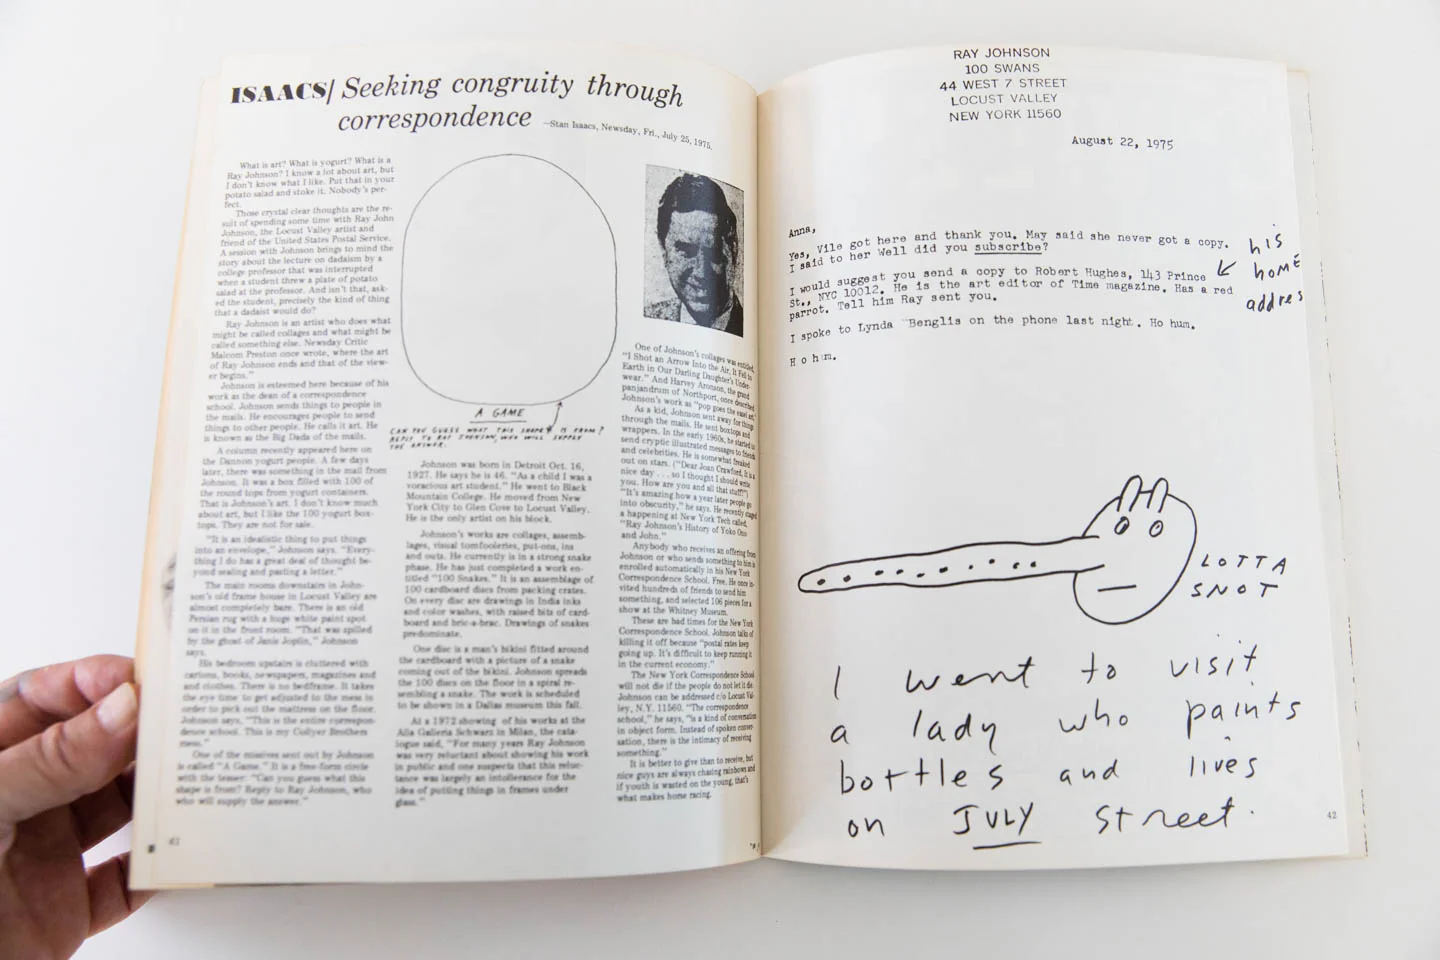 ISAACS/ Seeking congruity through
correspondence —Stan Isaacs, Newsday, Fri., July 25, 1975.
What is art? What is yogurt? What is a
Ray Johnson? I know a lot about art, but
I don't know what I like. Put that in your
potato salad and stoke it. Nobody's per-
fect.
Those crystal clear thoughts are the re-
sult of spending some time with Ray John
Johnson, the Locust Valley artist and
friend of the United States Postal Service.
A session with Johnson brings to mind the
story about the lecture on dadaism by a
college professor that was interrupted
when a student threw a plate of potato
salad at the professor. And isn't that, ask-
ed the student, precisely the kind of thing
that a dadaist would do?
Ray Johnson is an artist who does what
might be called collages and what might be
called something else. Newsday Critic
Malcom Preston once wrote, where the art
of Ray Johnson ends and that of the view-
er begins."
Johnson is esteemed here because of his
work as the dean of a correspondence
school. Johnson sends things to people in
the mails. He encourages people to send
things to other people. He calls it art. He
is known as the Big Dada of the mails.
A column recently appeared here on
the Dannon yogurt people. A few days
later, there was something in the mail from
Johnson. It was a box filled with 100 of
the round tops from yogurt containers.
That is Johnson's art. I don't know much
about art, but I like the 100 yogurt box-
tops. They are not for sale.
"It is an idealistic thing to put things
into an envelope," Johnson says. "Every-
thing I do has a great deal of thought be-
yond sealing and pasting a letter."
The main rooms downstairs in John-
son's old frame house in Locust Valley are
almost completely bare. There is an old
Persian rug with a huge white paint spot
on it in the front room. "That was spilled
by the ghost of Janis Joplin," Johnson
says.
His bedroom upstairs is cluttered with
cartons, books, newspapers, magazines and
and clothes. There is no bedframe. It takes
the eye time to get adjusted to the mess in
order to pick out the mattress on the floor.
Johnson says, "This is the entire correspon-
dence school. This is my Collyer Brothers
mess."
One of the missives sent out by Johnson
is called "A Game." It is a free-form circle
with the teaser: "Can you guess what this
shape is from? Reply to Ray Johnson, who
who will supply the answer."
A GAME
CAN YOU GUESS WHAT THIS SHAPE IS FROM?
REPLY TO RAY JOHNSON, WHO WILL SUPPLY
THE ANSWER.
Johnson was born in Detroit Oct. 16,
1927. He says he is 46. "As a child I was a
voracious art student." He went to Black
Mountain College. He moved from New
York City to Glen Cove to Locust Valley.
He is the only artist on his block.
Johnson's works are collages, assemb-
lages, visual tomfooleries, put-ons, ins
and outs. He currently is in a strong snake
phase. He has just completed a work en-
titled "100 Snakes." It is an assemblage of
100 cardboard discs from packing crates.
On every disc are drawings in India inks
and color washes, with raised bits of card-
board and bric-a-brac. Drawings of snakes
predominate.
One disc is a man's bikini fitted around
the cardboard with a picture of a snake
coming out of the bikini. Johnson spreads
the 100 discs on the floor in a spiral re-
sembling a snake. The work is scheduled
to be shown in a Dallas museum this fall.
At a 1972 showing of his works at the
Alla Galleria Schwarz in Milan, the cata-
logue said, "For many years Ray Johnson
was very reluctant about showing his work
in public and one suspects that this reluc-
tance was largely an intollerance for the
idea of putting things in frames under
glass."
One of Johnson's collages was entitled,
"I Shot an Arrow Into the Air, It Fell to
Earth in Our Darling Daughter's Under-
wear." And Harvey Aronson, the grand
panjandrum of Northport, once described
Johnson's work as "pop goes the easel art."
As a kid, Johnson sent away for things
through the mails. He sent boxtops and
wrappers. In the early 1960s, he started to
send cryptic illustrated messages to friends
and celebrities. He is somewhat freaked
out on stars. ("Dear Joan Crawford, It is a
nice day . . . so I thought I should write
you. How are you and all that stuff?")
"It's amazing how a year later people go
into obscurity," he says. He recently staged
a happening at New York Tech called,
"Ray Johnson's History of Yoko Ono
and John."
Anybody who receives an offering from
Johnson or who sends something to him is
enrolled automatically in his New York
Correspondence School. Free. He once in-
vited hundreds of friends to send him
something, and selected 106 pieces for a
show at the Whitney Museum.
These are bad times for the New York
Correspondence School. Johnson talks of
killing it off because "postal rates keep
going up. It's difficult to keep running it
in the current economy."
The New York Correspondence School
will not die if the people do not let it die.
Johnson can be addressed c/o Locust Val-
ley, N.Y. 11560. "The correspondence
school," he says, "is a kind of conversation
in object form. Instead of spoken conver-
sation, there is the intimacy of receiving
something."
It is better to give than to receive, but
nice guys are always chasing rainbows and
if youth is wasted on the young, that's
what makes horse racing.
RAY JOHNSON
100 SWANS
44 WEST 7 STREET
LOCUST VALLEY
NEW YORK 11560
August 22, 1975
Anna,
Yes, Vile got here and thank you. May said she never got a copy.
I said to her Well did you subscribe?
I would suggest you send a copy to Robert Hughes, 143 Prince
St., NYC 10012. He is the art editor of Time magazine. Has a red
parrot. Tell him Ray sent you.
his
home
addres
I spoke to Lynda Benglis on the phone last night. Ho hum.
H o h m.
LOTTA
SNOT
I went to visit
a lady who paints
bottles and lives
on JULY street.
42